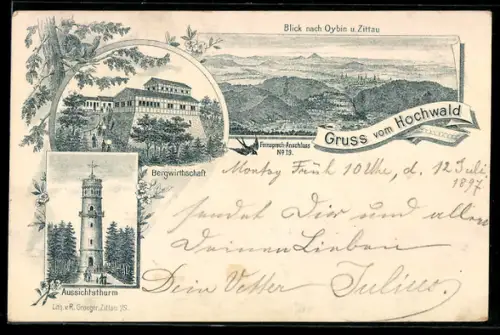 Blick nach Oybin u. Zittau
Gruss vom Hochwald
Fernsprech-Anschluss
No 19.
Bergwirthschaft
Montag Früh 10 Uhr, d. 12 Juli
1897.
sendet Dir und allen
Deinen Lieben
Dein Vetter Julius.
Aussichtsthurm
Lith. v. R. Graeger, Zittau i/S.